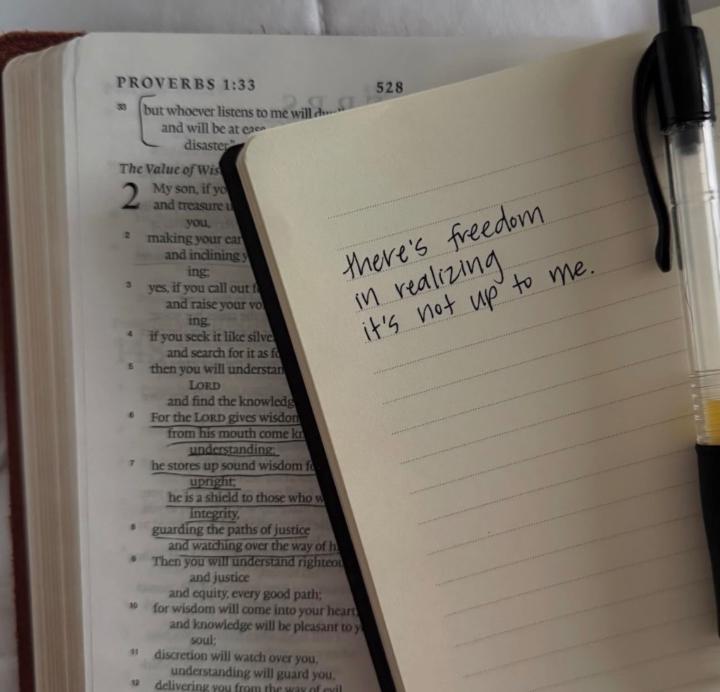 PROVERBS 1:33
528
33 but whoever listens to me will
and will be at ease
disaster
The Value of
2 My son, if
and treasure
you,
2 making your ear
and inclining
ing;
3 yes, if you call out
and raise your
ing,
4 if you seek it like
and search for it as
5 then you will
LORD
and find the
6 For the LORD gives
from his mouth come
understanding;
7 he stores up sound wisdom
upright;
he is a shield to those who
integrity,
8 guarding the paths of justice
and watching over the way of
9 Then you will understand
and justice
and equity, every good path;
10 for wisdom will come into your heart,
and knowledge will be pleasant to
soul;
11 discretion will watch over you,
understanding will guard you,
12 delivering you from the way of evil
there's freedom
in realizing
it's not up to me.